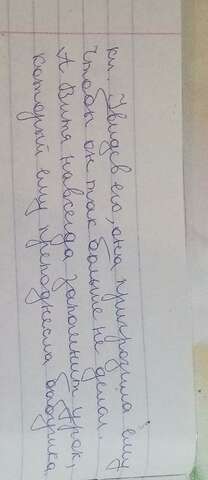 кл. Увидев его, она пригрозила ему
чтобы он так больше не делал.
А Витя навсегда запомнит урок,
который ему преподнесла бабушка.